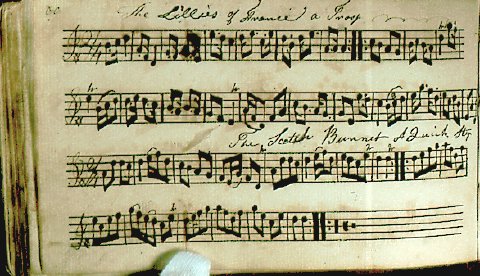 The Lillies of France a Troop
The Scotch Bunnet A Quick Step